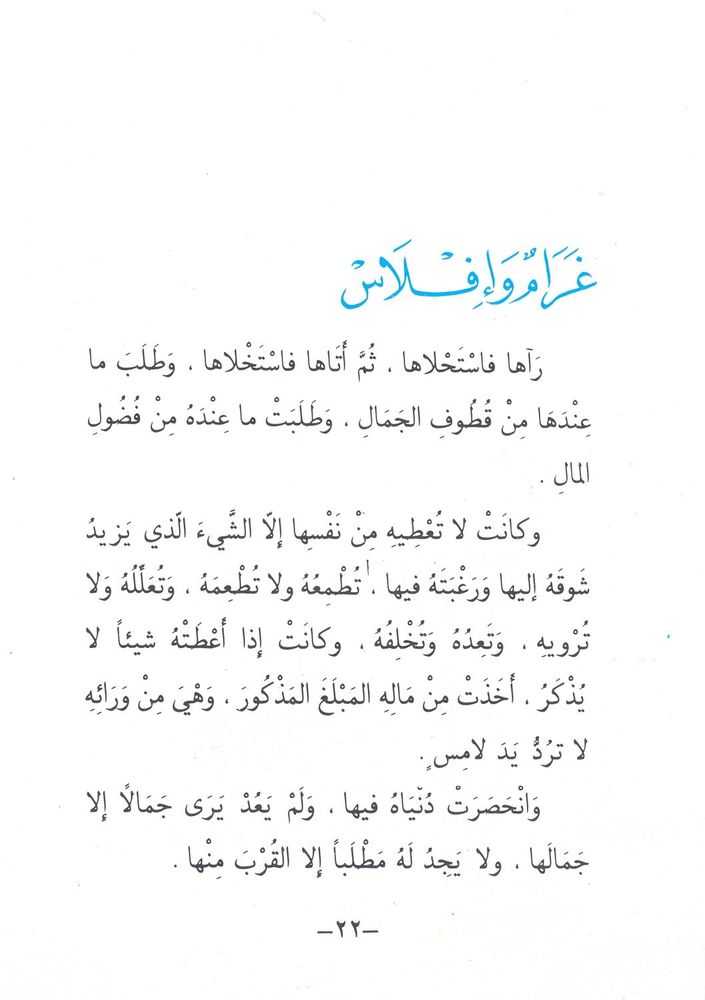 غَرَامٌ وَإِفْلَاسْ
رَآها فاسْتَحْلاها ، ثُمَّ أَتَاها فاسْتَخْلاها ، وَطَلَبَ ما
عِنْدَهَا مِنْ قُطُوفِ الجَمَالِ ، وَطَلَبَتْ ما عِنْدَهُ مِنْ فُضُولِ
المالِ .
وكانَتْ لا تُعْطِيهِ مِنْ نَفْسِها إِلّا الشَّيءَ الّذي يَزيدُ
شَوقَهُ إليها وَرَغْبَتَهُ فيها ، تُطْمِعُهُ ولا تُطْعِمَهُ ، وَتُعَلِّلُهُ وَلا
تُرْويهِ ، وَتَعِدُهُ وَتُخْلِفُهُ ، وكانَتْ إِذا أَعْطَتْهُ شيئاً لا
يُذْكَرُ ، أَخَذَتْ مِنْ مَالِهِ المَبْلَغَ المَذْكُورَ ، وَهْيَ مِنْ وَرَائِهِ
لا تَرُدُّ يَدَ لامِسٍ .
وَانْحَصَرَتْ دُنْيَاهُ فيها ، وَلَمْ يَعُدْ يَرَى جَمَالًا إِلا
جَمَالَها ، ولا يَجِدُ لَهُ مَطْلَباً إِلا القُرْبَ مِنْها .
–٢٢–